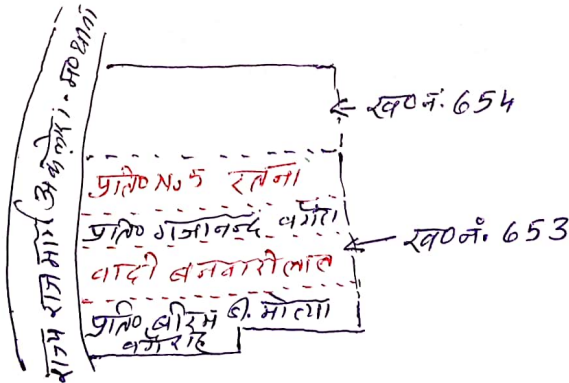 राज्य राजमार्ग
ख०नं. 654
प्रति० No 5 रतना
प्रति० गजानन्द वगैरा
ख०नं. 653
वादी बनवारीलाल
प्रति० बीरम
वगैराह